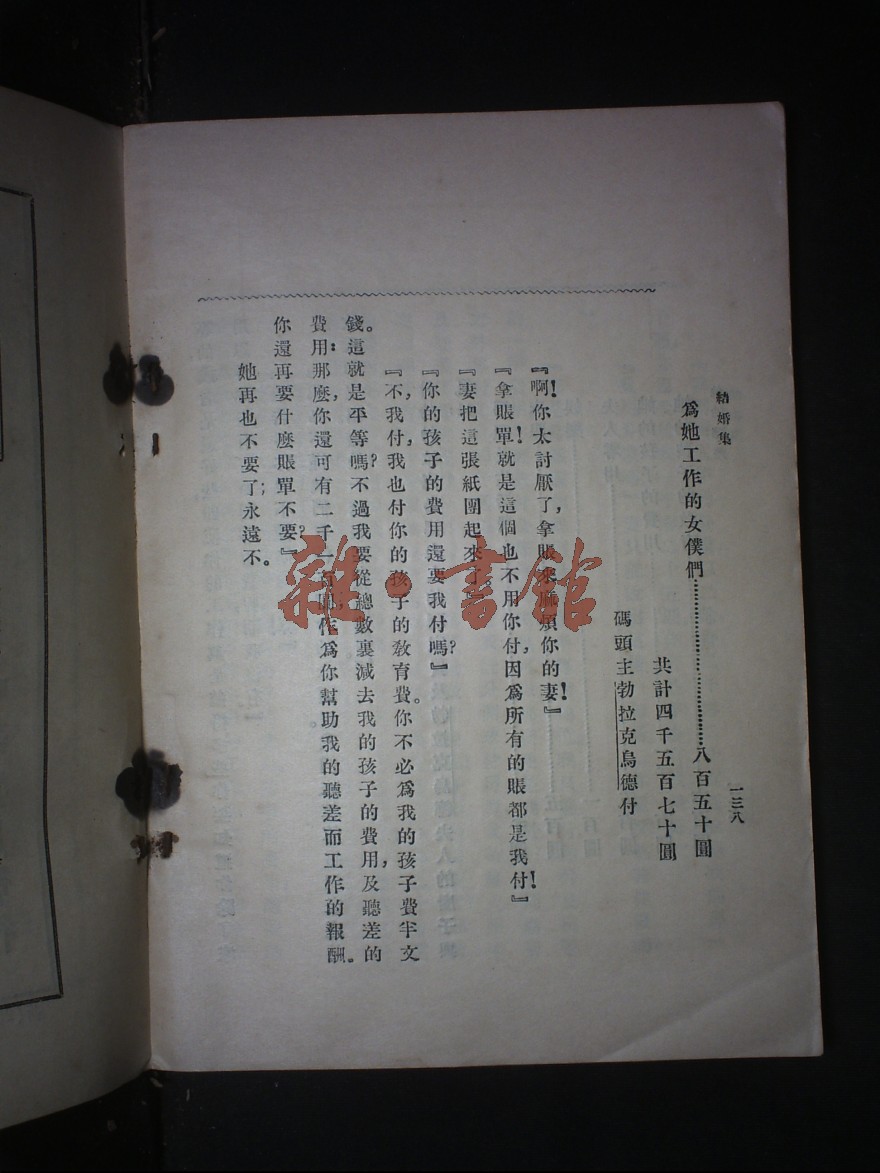 結婚集
一三八
爲她工作的女僕們……………………八百五十圓
共計四千五百七十圓
碼頭主勃拉克烏德付
『啊!你太討厭了,拿賬來麻煩你的妻!』
『拿賬單!就是這個也不用你付,因爲所有的賬都是我付!』
『妻把這張紙團起來了。
『你的孩子的費用還要我付嗎?』
『不,我付,我也付你的孩子的敎育費。你不必爲我的孩子費半文
錢。這就是平等嗎?不過我要從總數裏減去我的孩子的費用,及聽差的
費用:那麽,你還可有二千一百圓,作爲你幫助我的聽差而工作的報酬。
你還再要什麽賬單不要?』
她再也不要了;永遠不。
雜·書館